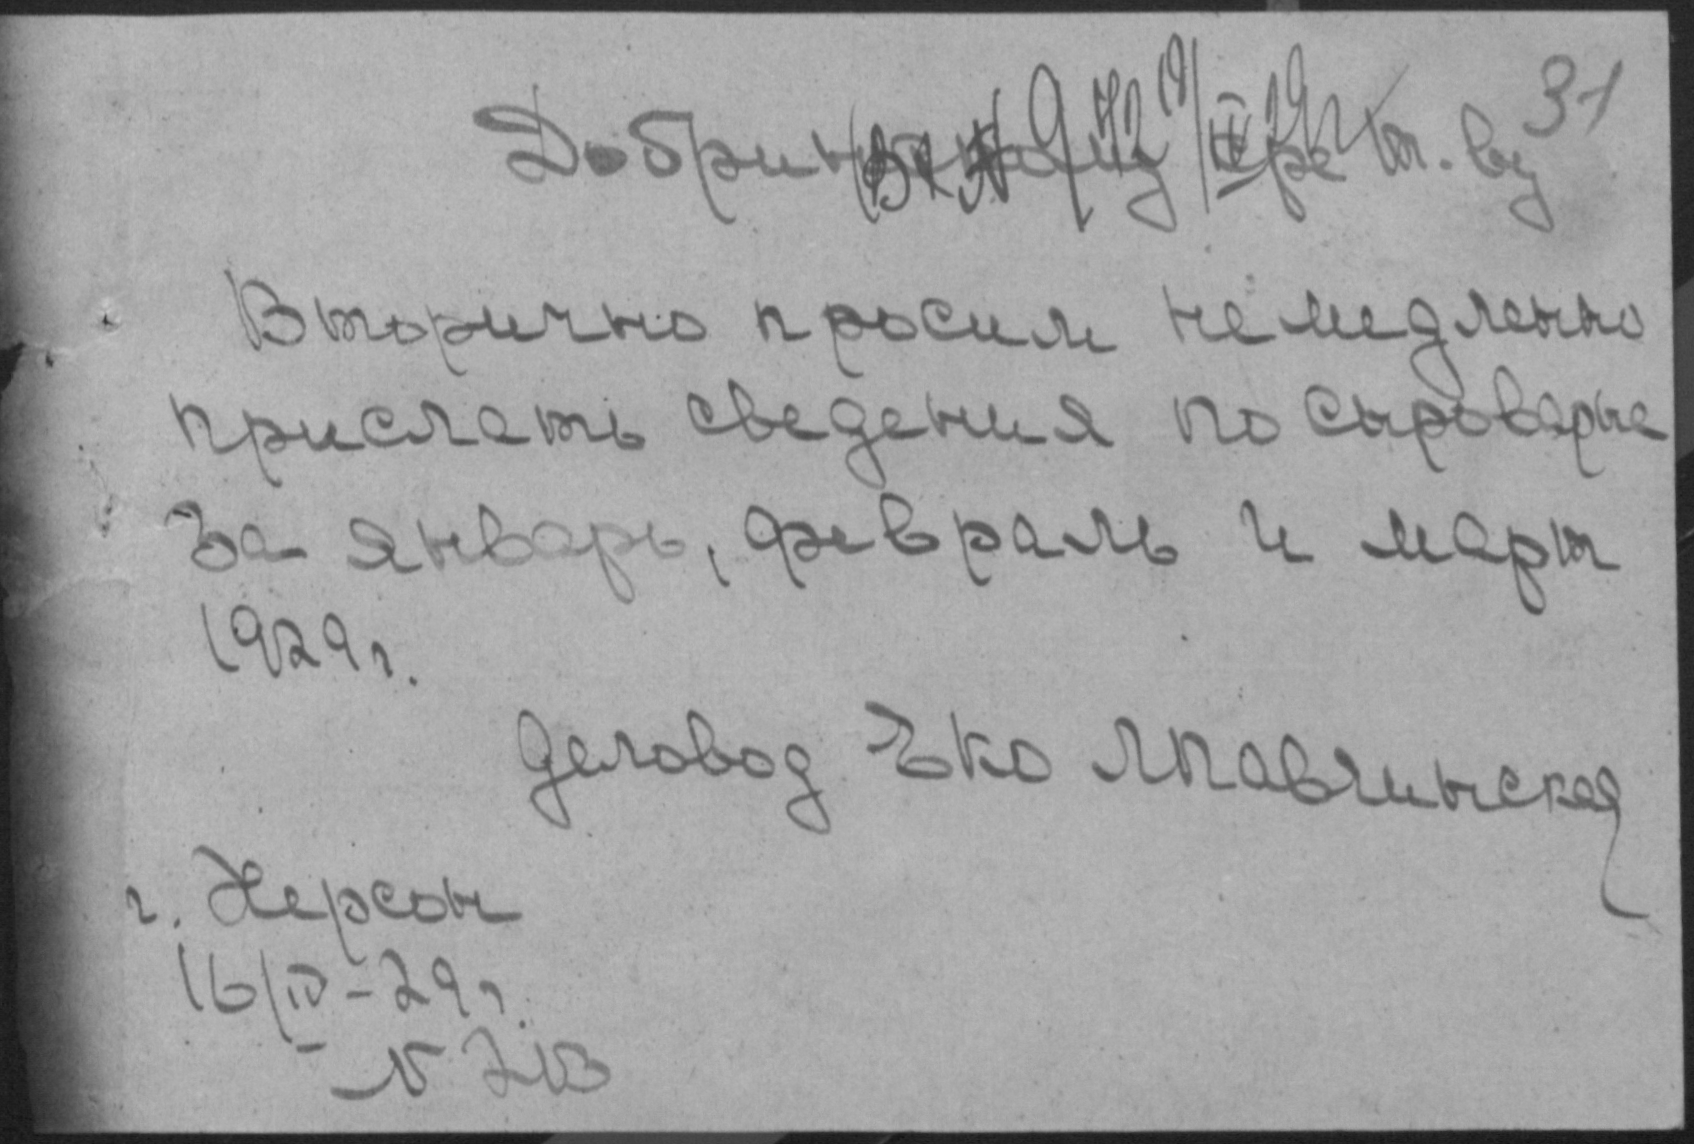 31
Вторично просим немедленно
прислать сведения по сыроварне
за январь, февраль и март
1929 г.
Деловод
г. Херсон
16/IV-29 г.
№